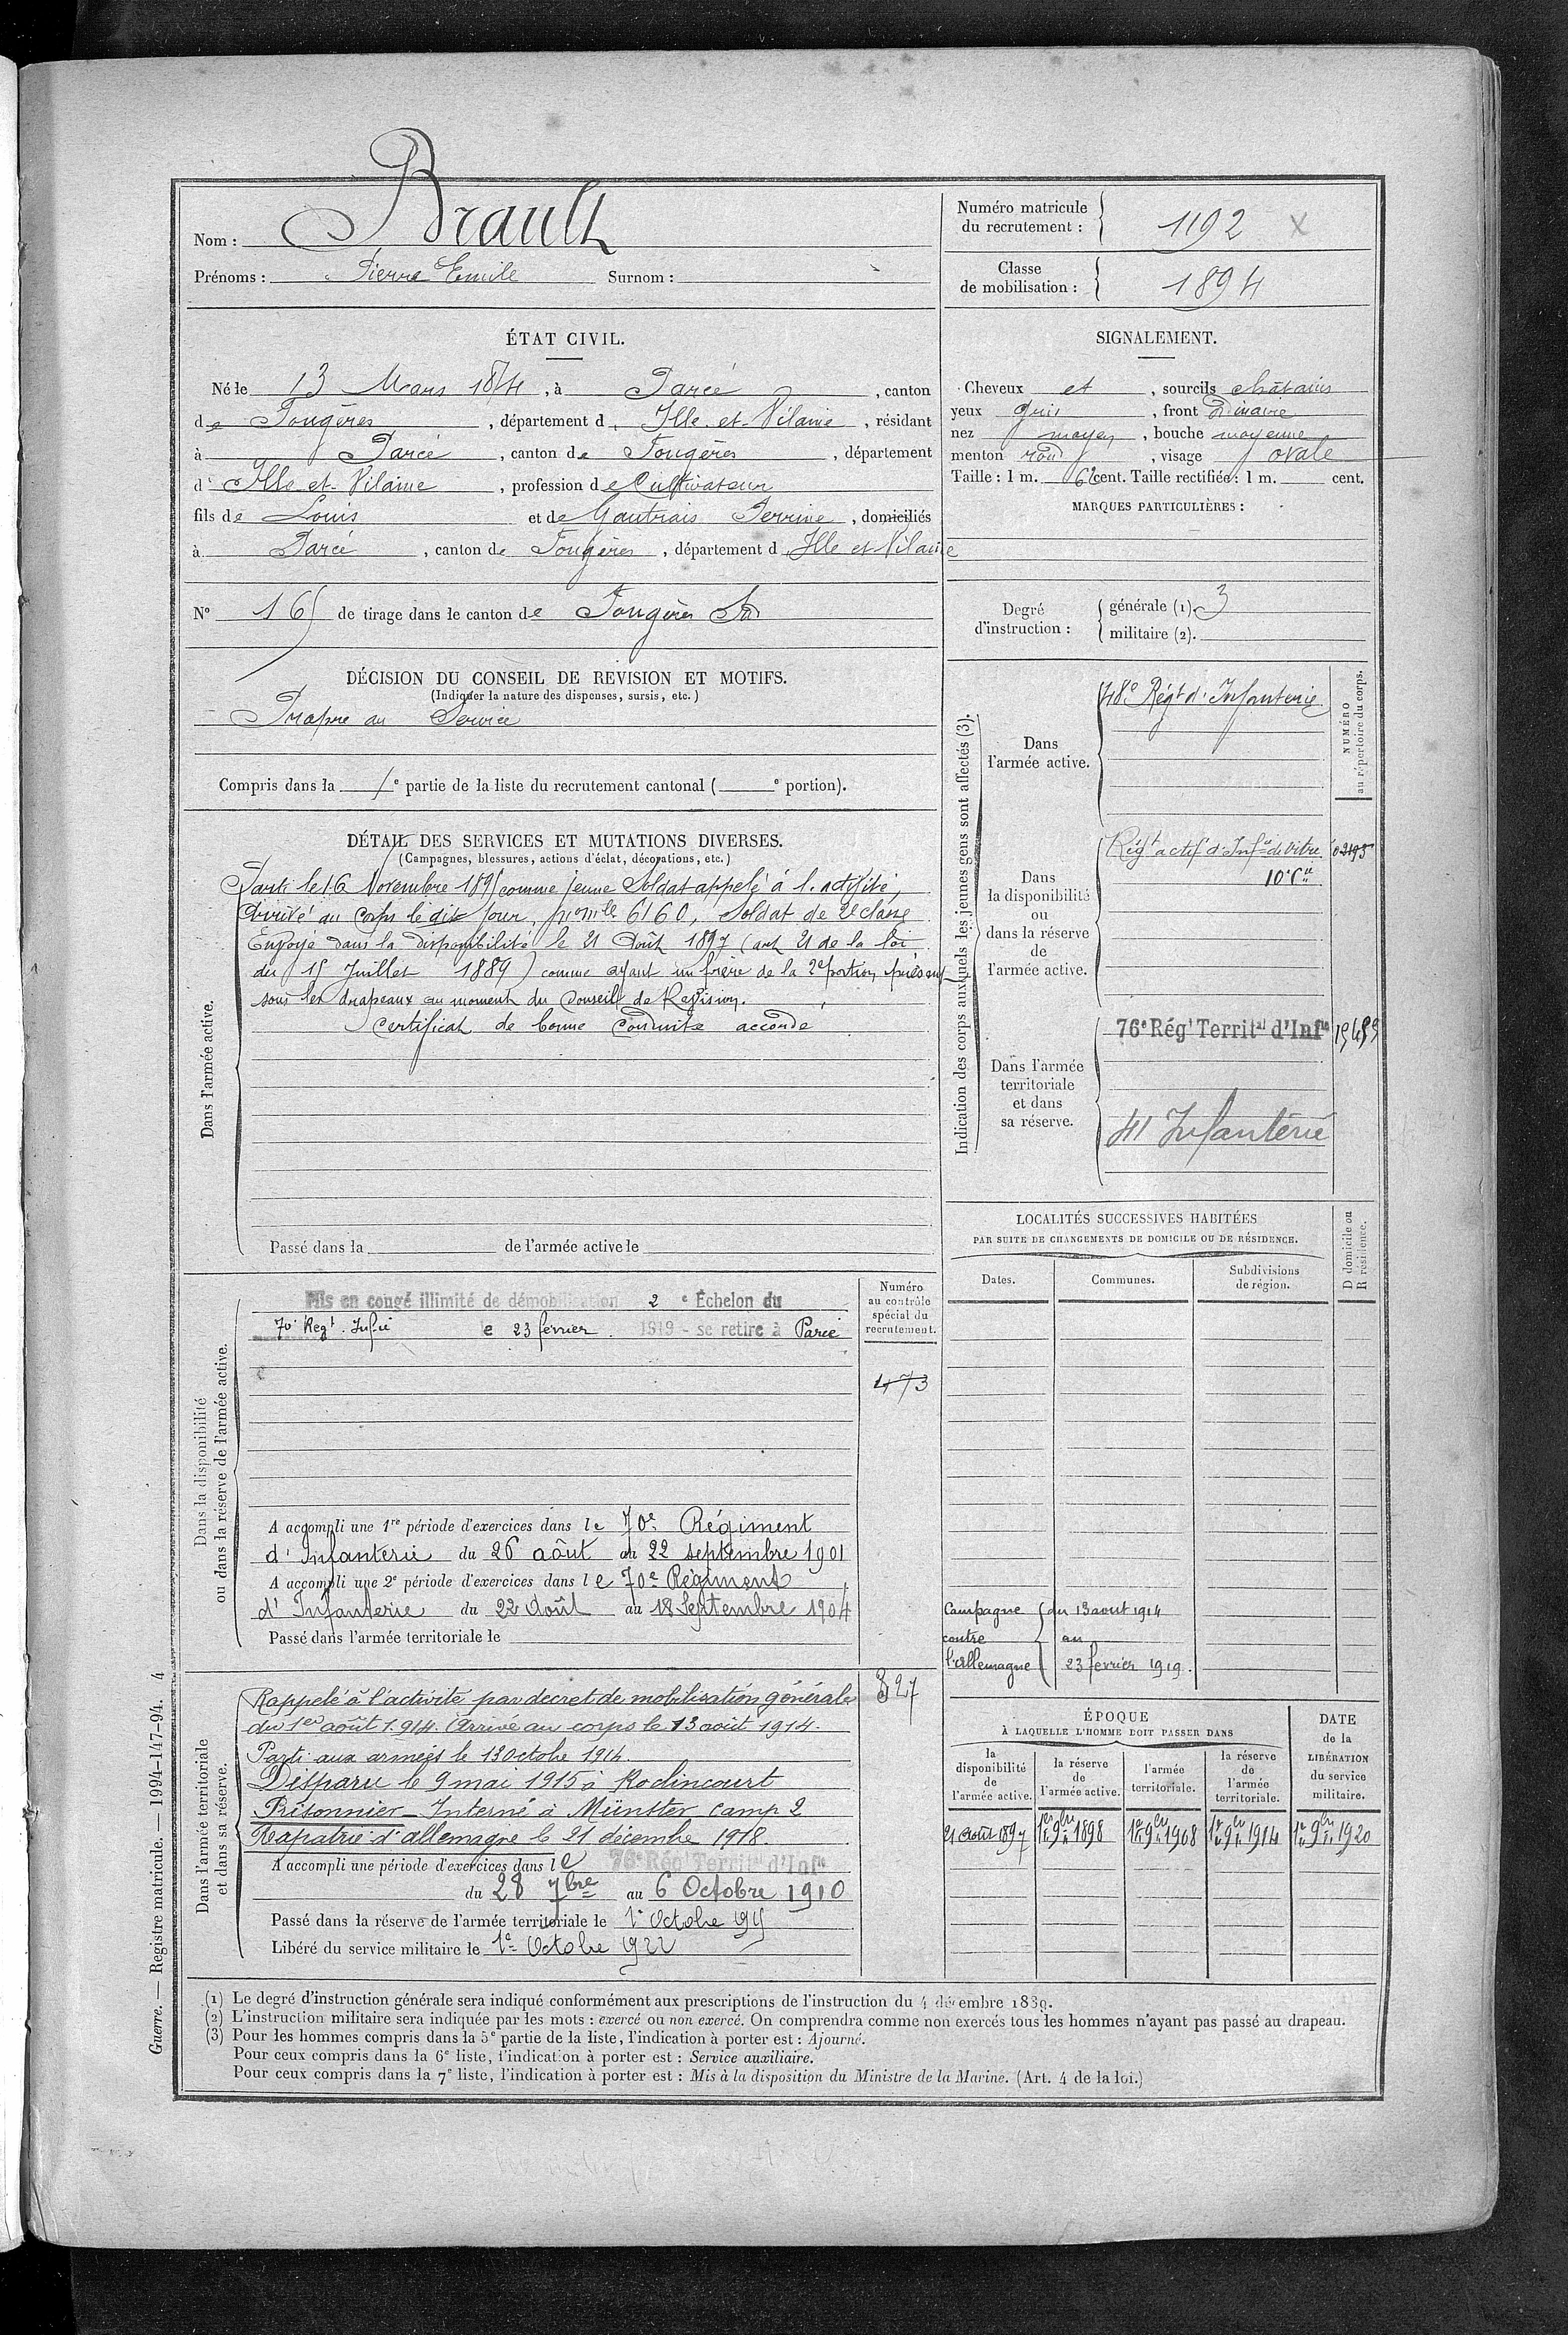 Nom : Brault
Prénoms : Pierre Emile Surnom :
Numéro matricule du recrutement : 1192 X
Classe de mobilisation : 1894
ÉTAT CIVIL.
Né le 13 Mars 1874, à Parcé, canton
de Fougères, département d'Ille-et-Vilaine, résidant
à Parcé, canton de Fougères, département
d'Ille-et-Vilaine, profession de Cultivateur
fils de Louis et de Gautrais Perrine, domiciliés
à Parcé, canton de Fougères, département d'Ille et Vilaine
N° 165 de tirage dans le canton de Fougères Sud
SIGNALEMENT.
Cheveux et, sourcils châtains
yeux gris, front ordinaire
nez moyen, bouche moyenne
menton rond, visage ovale
Taille : 1 m. 62 cent. Taille rectifiée : 1 m. cent.
MARQUES PARTICULIÈRES :
Degré d'instruction : générale (1). 3
militaire (2).
DÉCISION DU CONSEIL DE REVISION ET MOTIFS.
(Indiquer la nature des dispenses, sursis, etc.)
Propre au Service
Compris dans la 1e partie de la liste du recrutement cantonal ( e portion).
DÉTAIL DES SERVICES ET MUTATIONS DIVERSES.
(Campagnes, blessures, actions d'éclat, décorations, etc.)
Dans l'armée active.
Parti le 16 Novembre 1895 comme jeune Soldat appelé à l'activité,
Arrivé au corps le dit jour, nº mle 6160, Soldat de 2e classe
Envoyé dans la disponibilité le 21 Août 1897 (art 21 de la loi
du 15 Juillet 1889) comme ayant un frère de la 2e portion présent
sous les drapeaux au moment du Conseil de Revision.
Certificat de bonne Conduite accordé
Passé dans la de l'armée active le
Indication des corps auxquels les jeunes gens sont affectés (3).
NUMÉRO au répertoire du corps.
Dans l'armée active.
48e Régt d'Infanterie
Dans la disponibilité ou dans la réserve de l'armée active.
Régt actif d'Infie de Vitré
10e Cie
Dans l'armée territoriale et dans sa réserve.
76e Régt Territal d'Infie
41 Infanterie
LOCALITÉS SUCCESSIVES HABITÉES
PAR SUITE DE CHANGEMENTS DE DOMICILE OU DE RÉSIDENCE.
D domicile ou R résidence.
Dates. Communes. Subdivisions de région.
Campagne du 13 aout 1914
contre au
l'Allemagne 23 fevrier 1919.
Dans la disponibilité ou dans la réserve de l'armée active.
Numéro au contrôle spécial du recrutement.
Mis en congé illimité de démobilisation 2e Échelon du
70e Regt. Infie le 23 février 1919 - se retire à Parcé
473
A accompli une 1re période d'exercices dans le 70e Régiment
d'Infanterie du 26 août au 22 septembre 1901
A accompli une 2e période d'exercices dans le 70e Régiment
d'Infanterie du 22 Août au 18 Septembre 1904
Passé dans l'armée territoriale le
Dans l'armée territoriale et dans sa réserve.
827
Rappelé à l'activité par decret de mobilisation générale
du 1er août 1914. Arrivé au corps le 13 août 1914.
Parti aux armées le 13 octobre 1914.
Disparu le 9 mai 1915 à Roclincourt
Prisonnier - Interné à Münster camp 2
Rapatrié d'allemagne le 21 décembre 1918.
A accompli une période d'exercices dans le 76e Rég Territal d'Infie
du 28 7bre au 6 Octobre 1910
Passé dans la réserve de l'armée territoriale le 1er Octobre 1915
Libéré du service militaire le 1er Octobre 1922
ÉPOQUE
À LAQUELLE L'HOMME DOIT PASSER DANS
la disponibilité de l'armée active.
la réserve de l'armée active.
l'armée territoriale.
la réserve de l'armée territoriale.
DATE de la LIBÉRATION du service militaire.
21 Août 1897 1er 9bre 1898 1er 9bre 1908 1er 9bre 1914 1er 9bre 1920
(1) Le degré d'instruction générale sera indiqué conformément aux prescriptions de l'instruction du 4 décembre 1889.
(2) L'instruction militaire sera indiquée par les mots : exercé ou non exercé. On comprendra comme non exercés tous les hommes n'ayant pas passé au drapeau.
(3) Pour les hommes compris dans la 5e partie de la liste, l'indication à porter est : Ajourné.
Pour ceux compris dans la 6e liste, l'indication à porter est : Service auxiliaire.
Pour ceux compris dans la 7e liste, l'indication à porter est : Mis à la disposition du Ministre de la Marine. (Art. 4 de la loi.)
Guerre. — Registre matricule. — 1994-147-94. 4